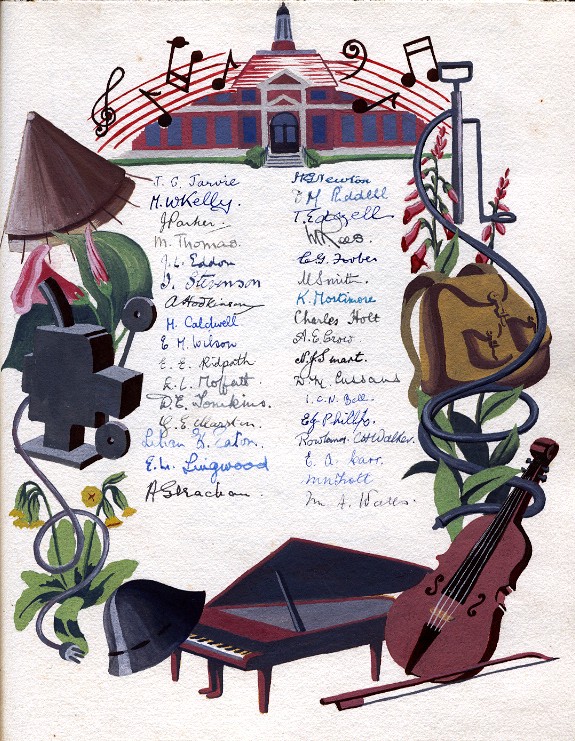 J. C. Jarvie
M. W Kelly.
J Parker.
M. Thomas.
J. L. Eddon
J. Stevenson
A Hodkinson
M. Caldwell
E M. Wilson
E. E. Ridpath
L. L. Moffatt.
D. E. Tomkins.
Lilian K. Eaton.
E. L. Lingwood
A G Strachan.
Newton
E M Riddell
T. Edgell
W Rees.
C. G. Forbes
M Smith.
K. Mortimore
Charles Holt
A. E. Crow
N. J Smart.
D. M. Cussans
I. C. N. Bell.
E J Phillips.
Rowland. C H Walker.
E. A. Carr.
M N Trott
M. A. Wales.